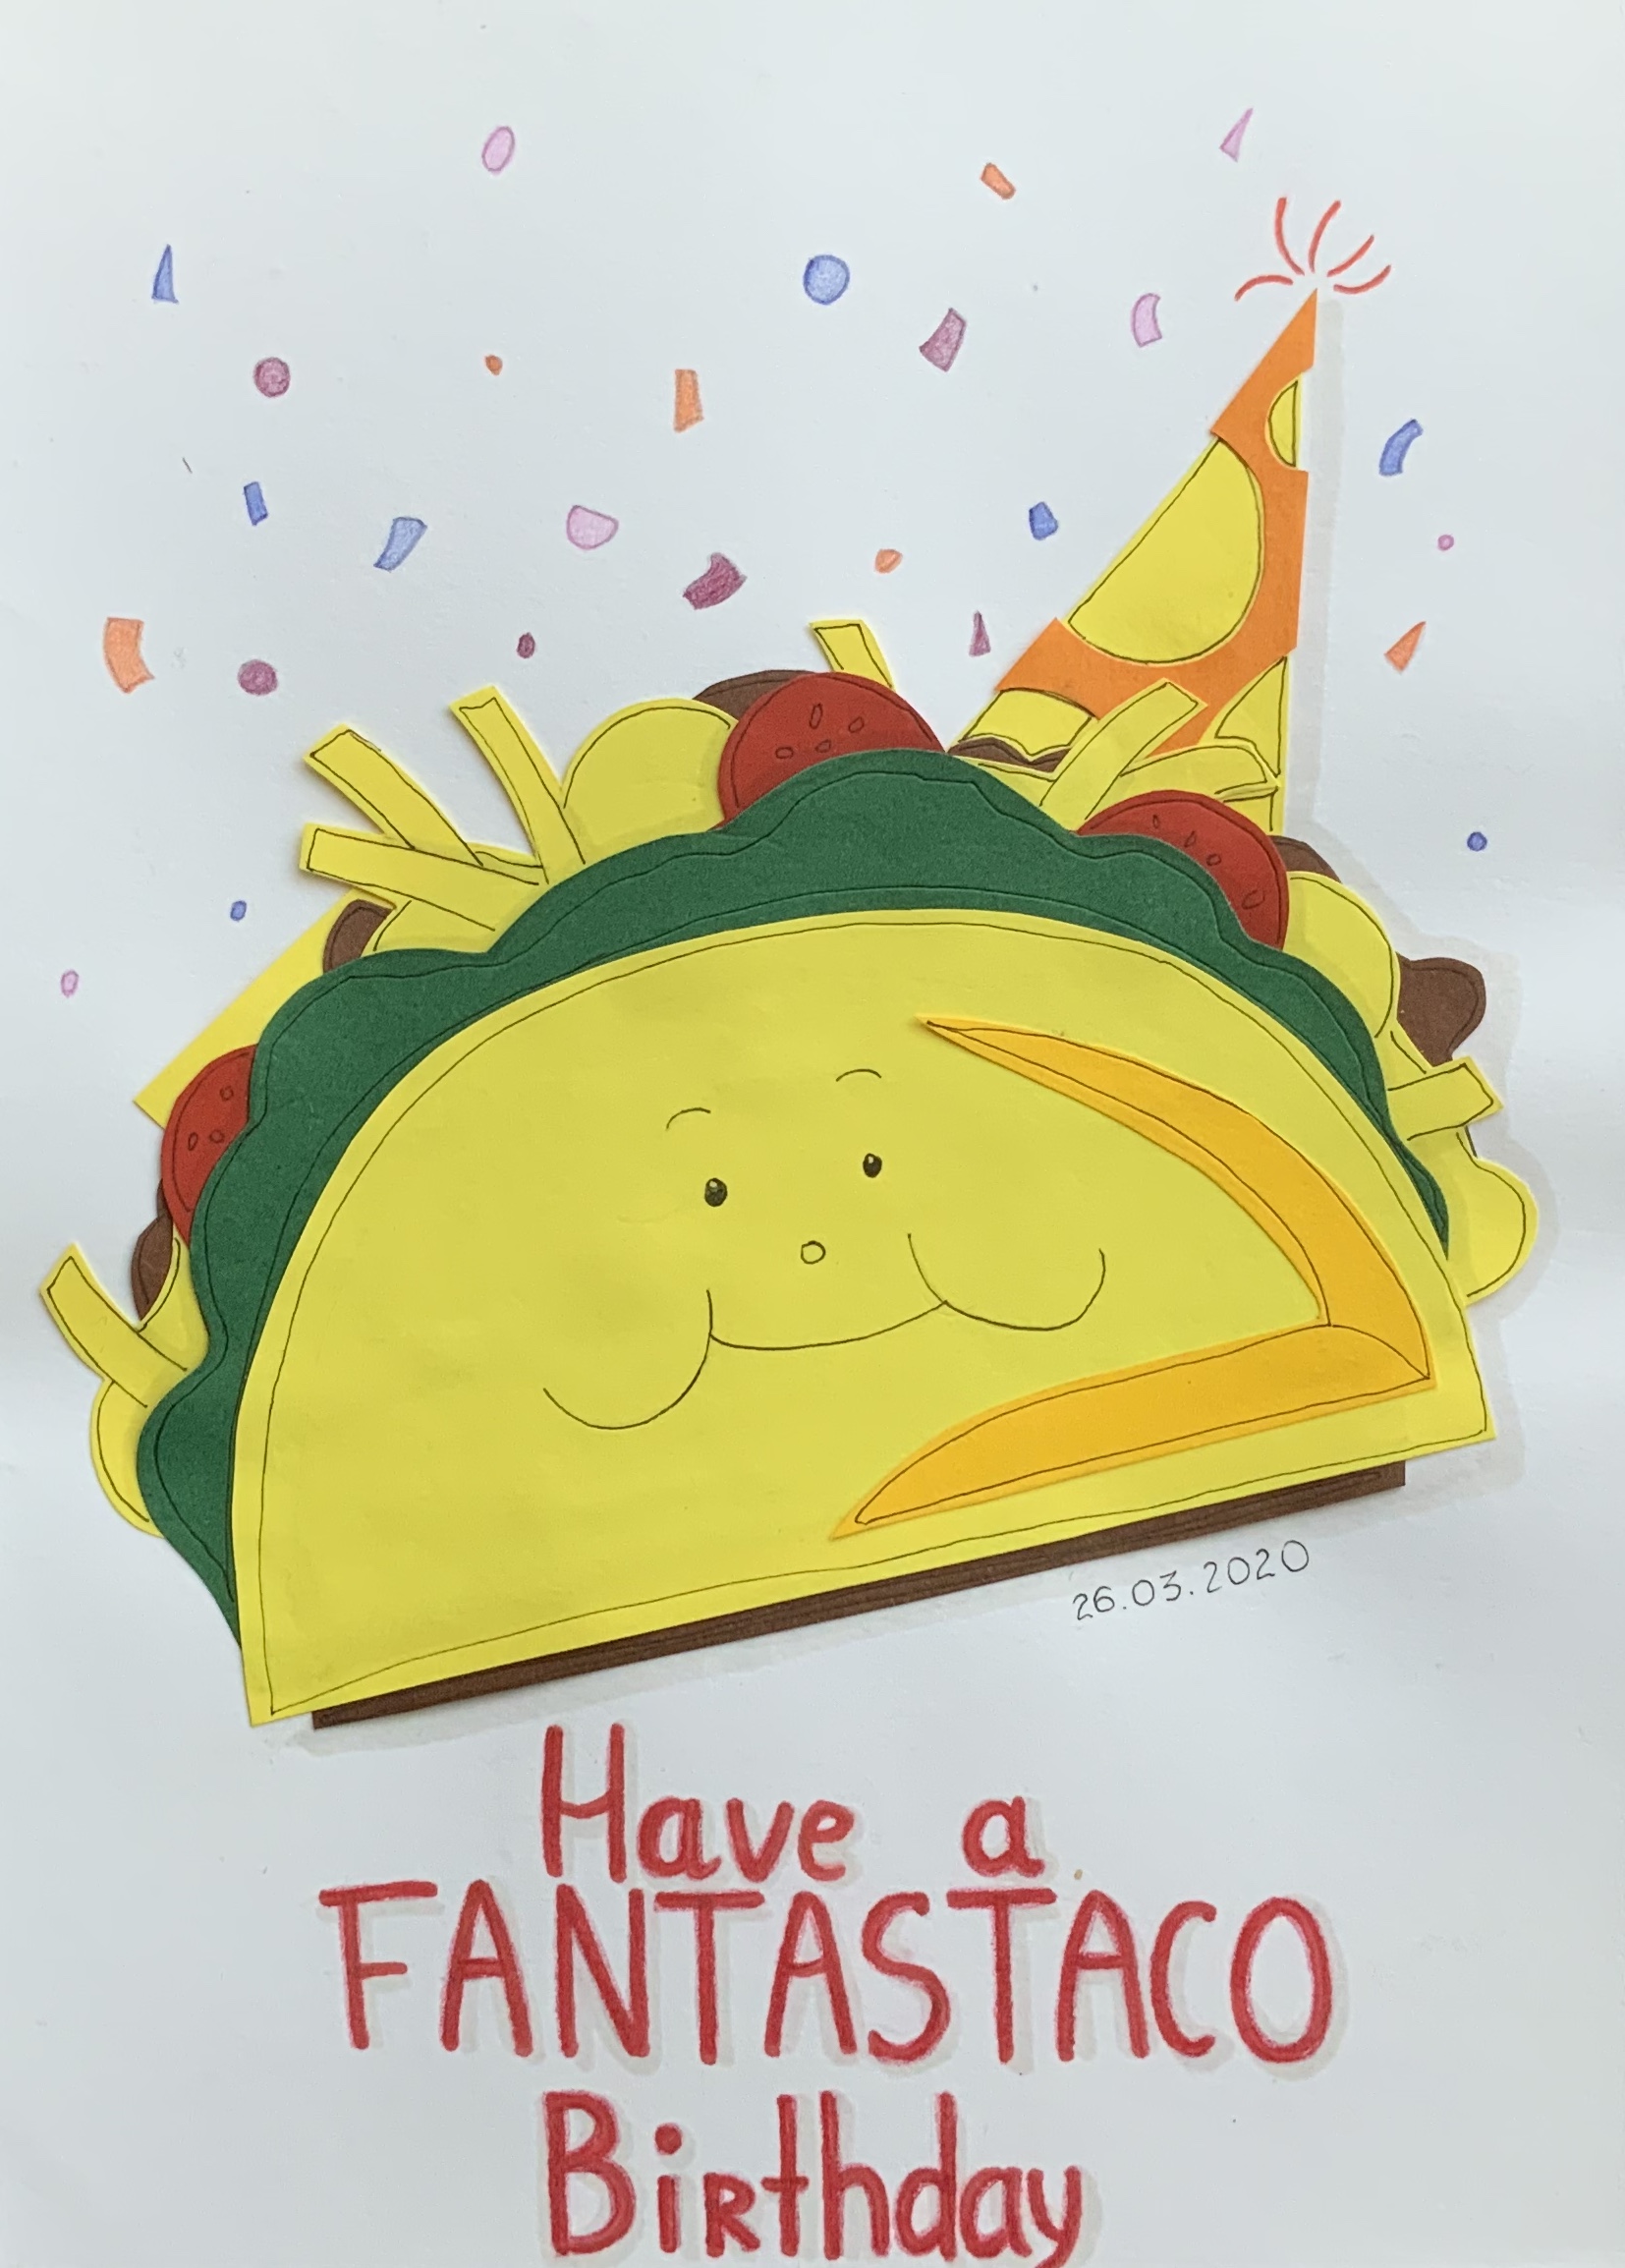 26.03.2020
Have a
FANTASTACO
Birthday